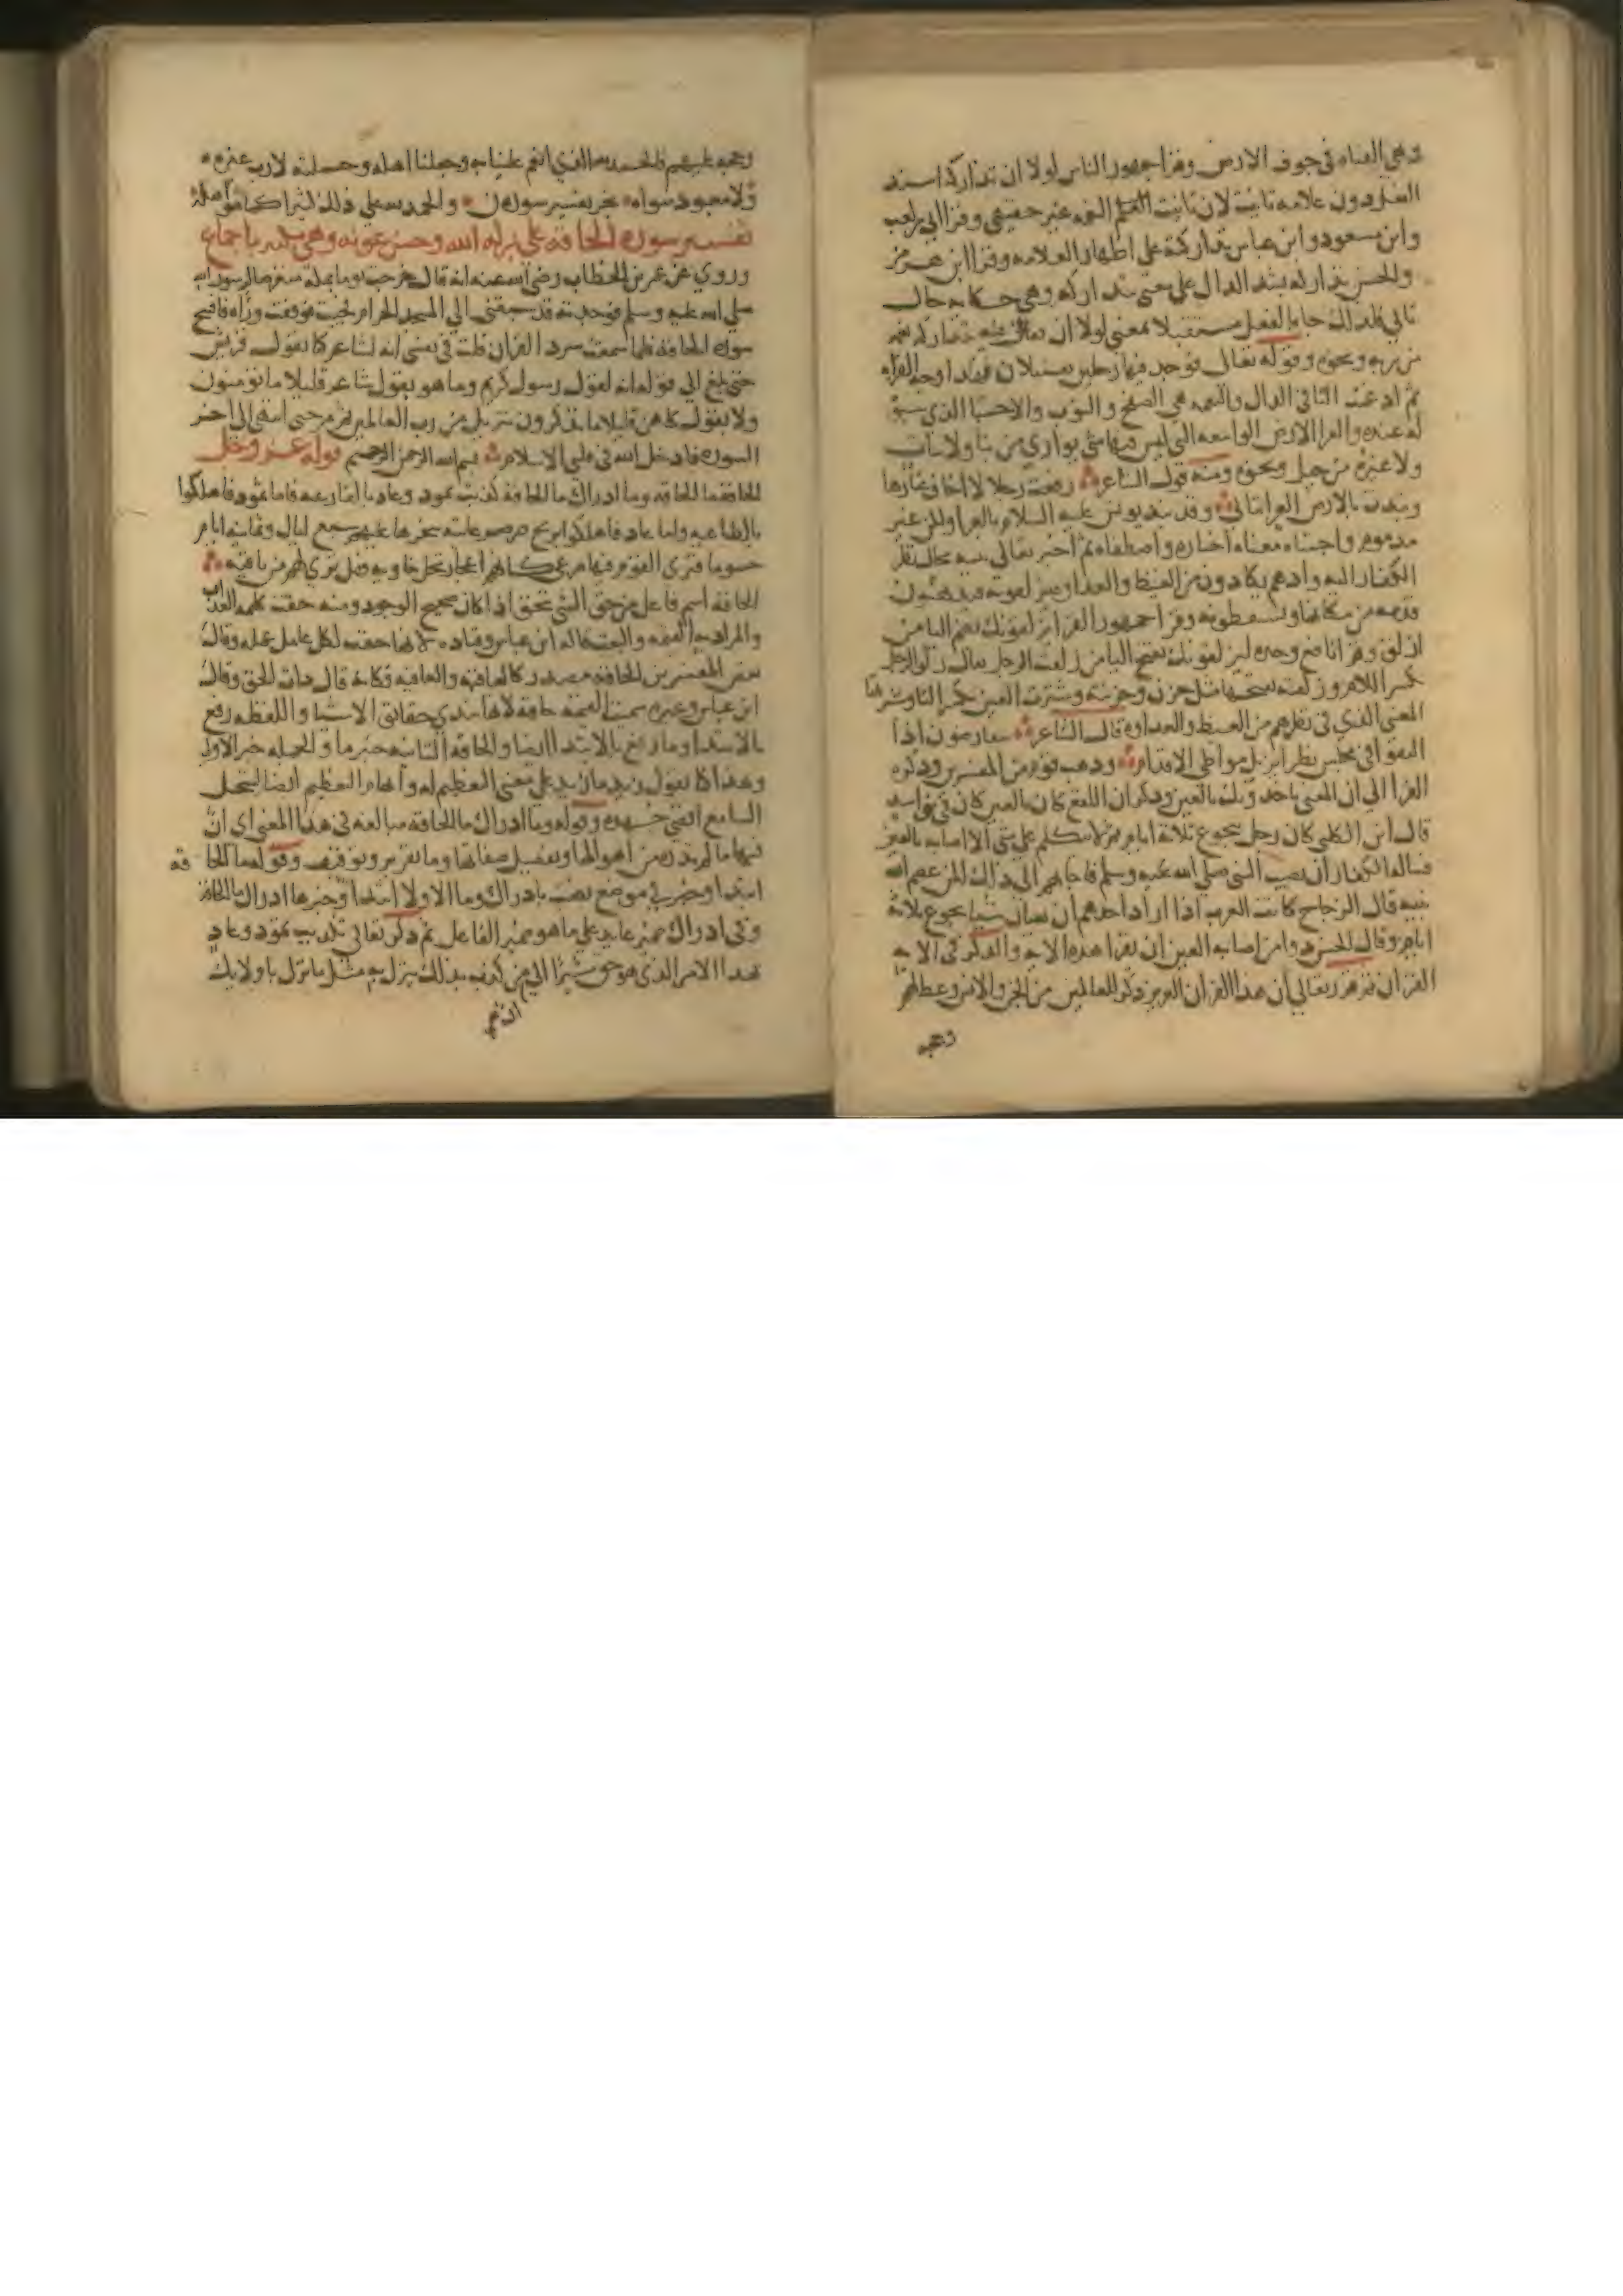 وهي الفناه في جوف الارض وقرا جمهور الناس لولا ان تداركه اسند
الفعل دون علامه تانيث لان تانيث النعمه غير حقيقي وقرا ابي بن كعب
وابن مسعود وابن عباس تداركته على اظهار العلامه وقرا ابن هرمز
والحسن تداركه بشد الدال على معنى تتداركه وهي حكايه حال
تاتي فلذلك جا بالفعل مستقبلا بمعنى لولا ان يقال فيه تتداركه نعمه
من ربه ونحوه وقوله تعالى فوجد فيها رجلين يقتتلان فهذا وجه القراه
ثم ادغمت التا في الدال والنعمه هي الصفح والتوب والاجتبا الذي سبق
له عنده والعرا الارض الواسعه التي ليس فيها شي يواري من بنا ولا نبات
ولا غيره من جبل ونحوه ومنه قول الشاعر رفعت رجلا لا اخاف عثارها
ونبذت بالارض العرا ثيابي وقد نبذ يونس عليه السلام بالعرا ولكن غير
مذموم واجتباه معناه اختاره واصطفاه ثم اخبر تعالى نبيه بحال نظر
الكفار اليه وانهم يكادون من الغيظ والعداوه يزلقونه فيذهبون
قدمه من مكانها ويسقطونه وقرا جمهور القرا ليزلقونك بضم اليا من
ازلق وقرا نافع وحده ليزلقونك بفتح اليا من زلقت الرجل يقال زلق الرجل
بكسر اللام وزلقته بفتحها مثل حزن وحزنته وشترت العين بكسر التا وشترتها
المعنى الذي في نظرهم من الغيظ والعداوه قال الشاعر يتقارضون اذا
التقوا في مجلس نظرا يزيل مواطي الاقدام وذهب قوم من المفسرين وذكره
الفرا الى ان المعنى ياخذونك بالعين وذكر ان اللقع كان بالعين كان في بني اسد
قال ابن الكلبي كان رجل يتجوع ثلاثة ايام ثم لا يتكلم على شي الا اصابه بالعين
فساله الكفار ان يصيب النبي صلى الله عليه وسلم فاجابهم الى ذلك ولكن عصم الله
نبيه قال الزجاج كانت العرب اذا اراد احدهم ان يعتان شيا تجوع ثلاثة
ايام وقال الحسن دوا من اصابه العين ان يقرا هذه الايه والذكر في الايه
القران ثم قرر تعالى ان هذا القران العزيز ذكر للعالمين من الجن والانس وعظا لهم
وحجه
وحجه عليهم فالحمد لله الذي انعم علينا به وجعلنا اهله وحملته لا رب غيره
ولا معبود سواه نجز تفسير سوره ن والحمد لله على ذلك كثيرا كما هو اهله
تفسير سوره الحاقه على بركه الله وحسن عونه وهي مكيه باجماع
وروي عن عمر بن الخطاب رضي الله عنه انه قال خرجت يوما بمكه متعرضا لرسول الله
صلى الله عليه وسلم فوجدته قد سبقني الى المسجد الحرام فجيت فوقفت وراه فافتتح
سوره الحاقه فلما سمعت سرد القران قلت في نفسي انه لشاعر كما تقول قريش
حتى بلغ الى قوله انه لقول رسول كريم وما هو بقول شاعر قليلا ما تومنون
ولا بقول كاهن قليلا ما تذكرون تنزيل من رب العالمين ثم مر حتى انتهى الى اخر
السوره فادخل الله في قلبي الاسلام بسم الله الرحمن الرحيم قوله عز وجل
الحاقه ما الحاقه وما ادراك ما الحاقه كذبت ثمود وعاد بالقارعه فاما ثمود فاهلكوا
بالطاغيه واما عاد فاهلكوا بريح صرصر عاتيه سخرها عليهم سبع ليال وثمانيه ايام
حسوما فترى القوم فيها صرعى كانهم اعجاز نخل خاويه فهل ترى لهم من باقيه
الحاقه اسم فاعل من حق الشي يحق اذا كان صحيح الوجود ومنه حقت كلمه العذاب
والمراد به القيمه والبعث قاله ابن عباس وقتاده لانها حقت لكل عامل عمله وقال
بعض المفسرين الحاقه مصدر كالعاقبه والعافيه فكانه قال ذات الحق وقال
ابن عباس وغيره سميت القيمه حاقه لانها تبدي حقائق الاشيا واللفظه رفع
بالابتدا وما رفع بالابتدا ايضا والحاقه الثانيه خبر ما والجمله خبر الاول
وهذا كما تقول زيد ما زيد على معنى التعظيم له والابهام في التعظيم ايضا ليتخيل
السامع اقصى جهده وقوله وما ادراك ما الحاقه مبالغه في هذا المعنى اي ان
فيها ما لم تدره من اهوالها وتفصيل صفاتها وما تقرير وتوقيف وقوله ما الحاقه
ابتدا وخبر في موضع نصب بادراك وما الاولى ابتدا وخبرها ادراك ما الحاقه
وفي ادراك ضمير عايد على ما هو ضمير الفاعل ثم ذكر تعالى تكذيب ثمود وعاد
بهذا الامر الذي هو حق مشيرا الى من كذب بذلك ينزل به مثل ما نزل باوليك